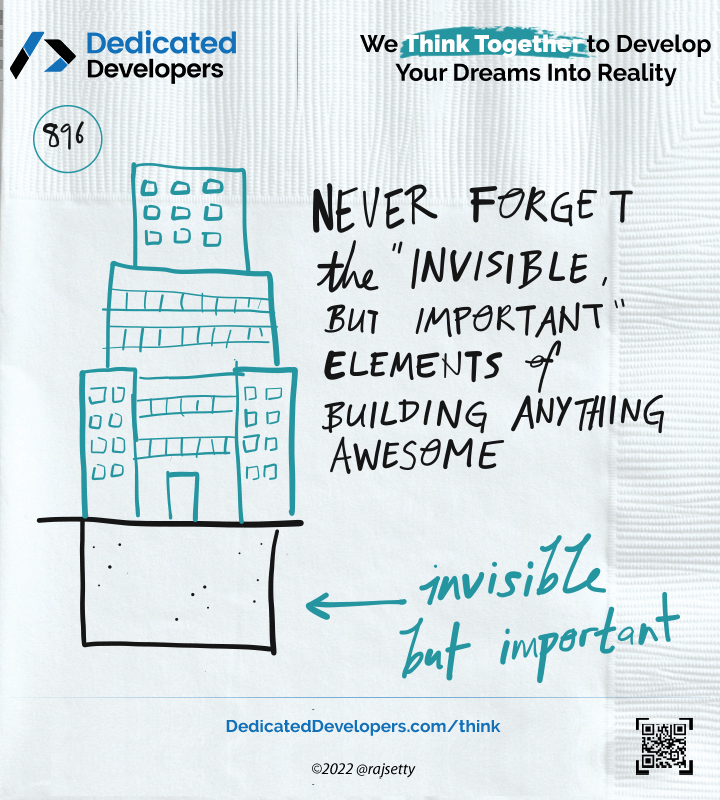 Dedicated
Developers
We Think Together to Develop
Your Dreams Into Reality
896
NEVER FORGET
the "INVISIBLE,
BUT IMPORTANT"
ELEMENTS of
BUILDING ANYTHING
AWESOME
invisible
but important
DedicatedDevelopers.com/think
©2022 @rajsetty